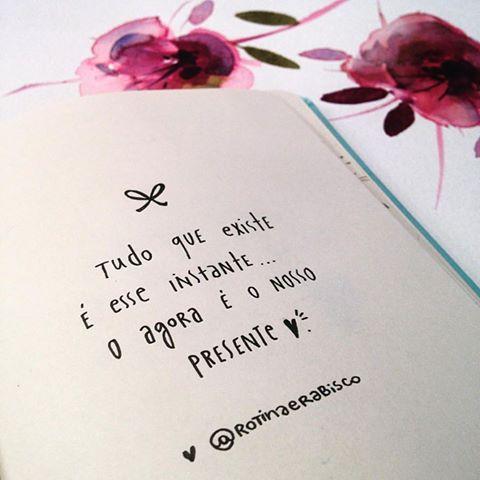 Tudo que existe
é esse instante...
o agora é o nosso
presente
@rotinaerabisco